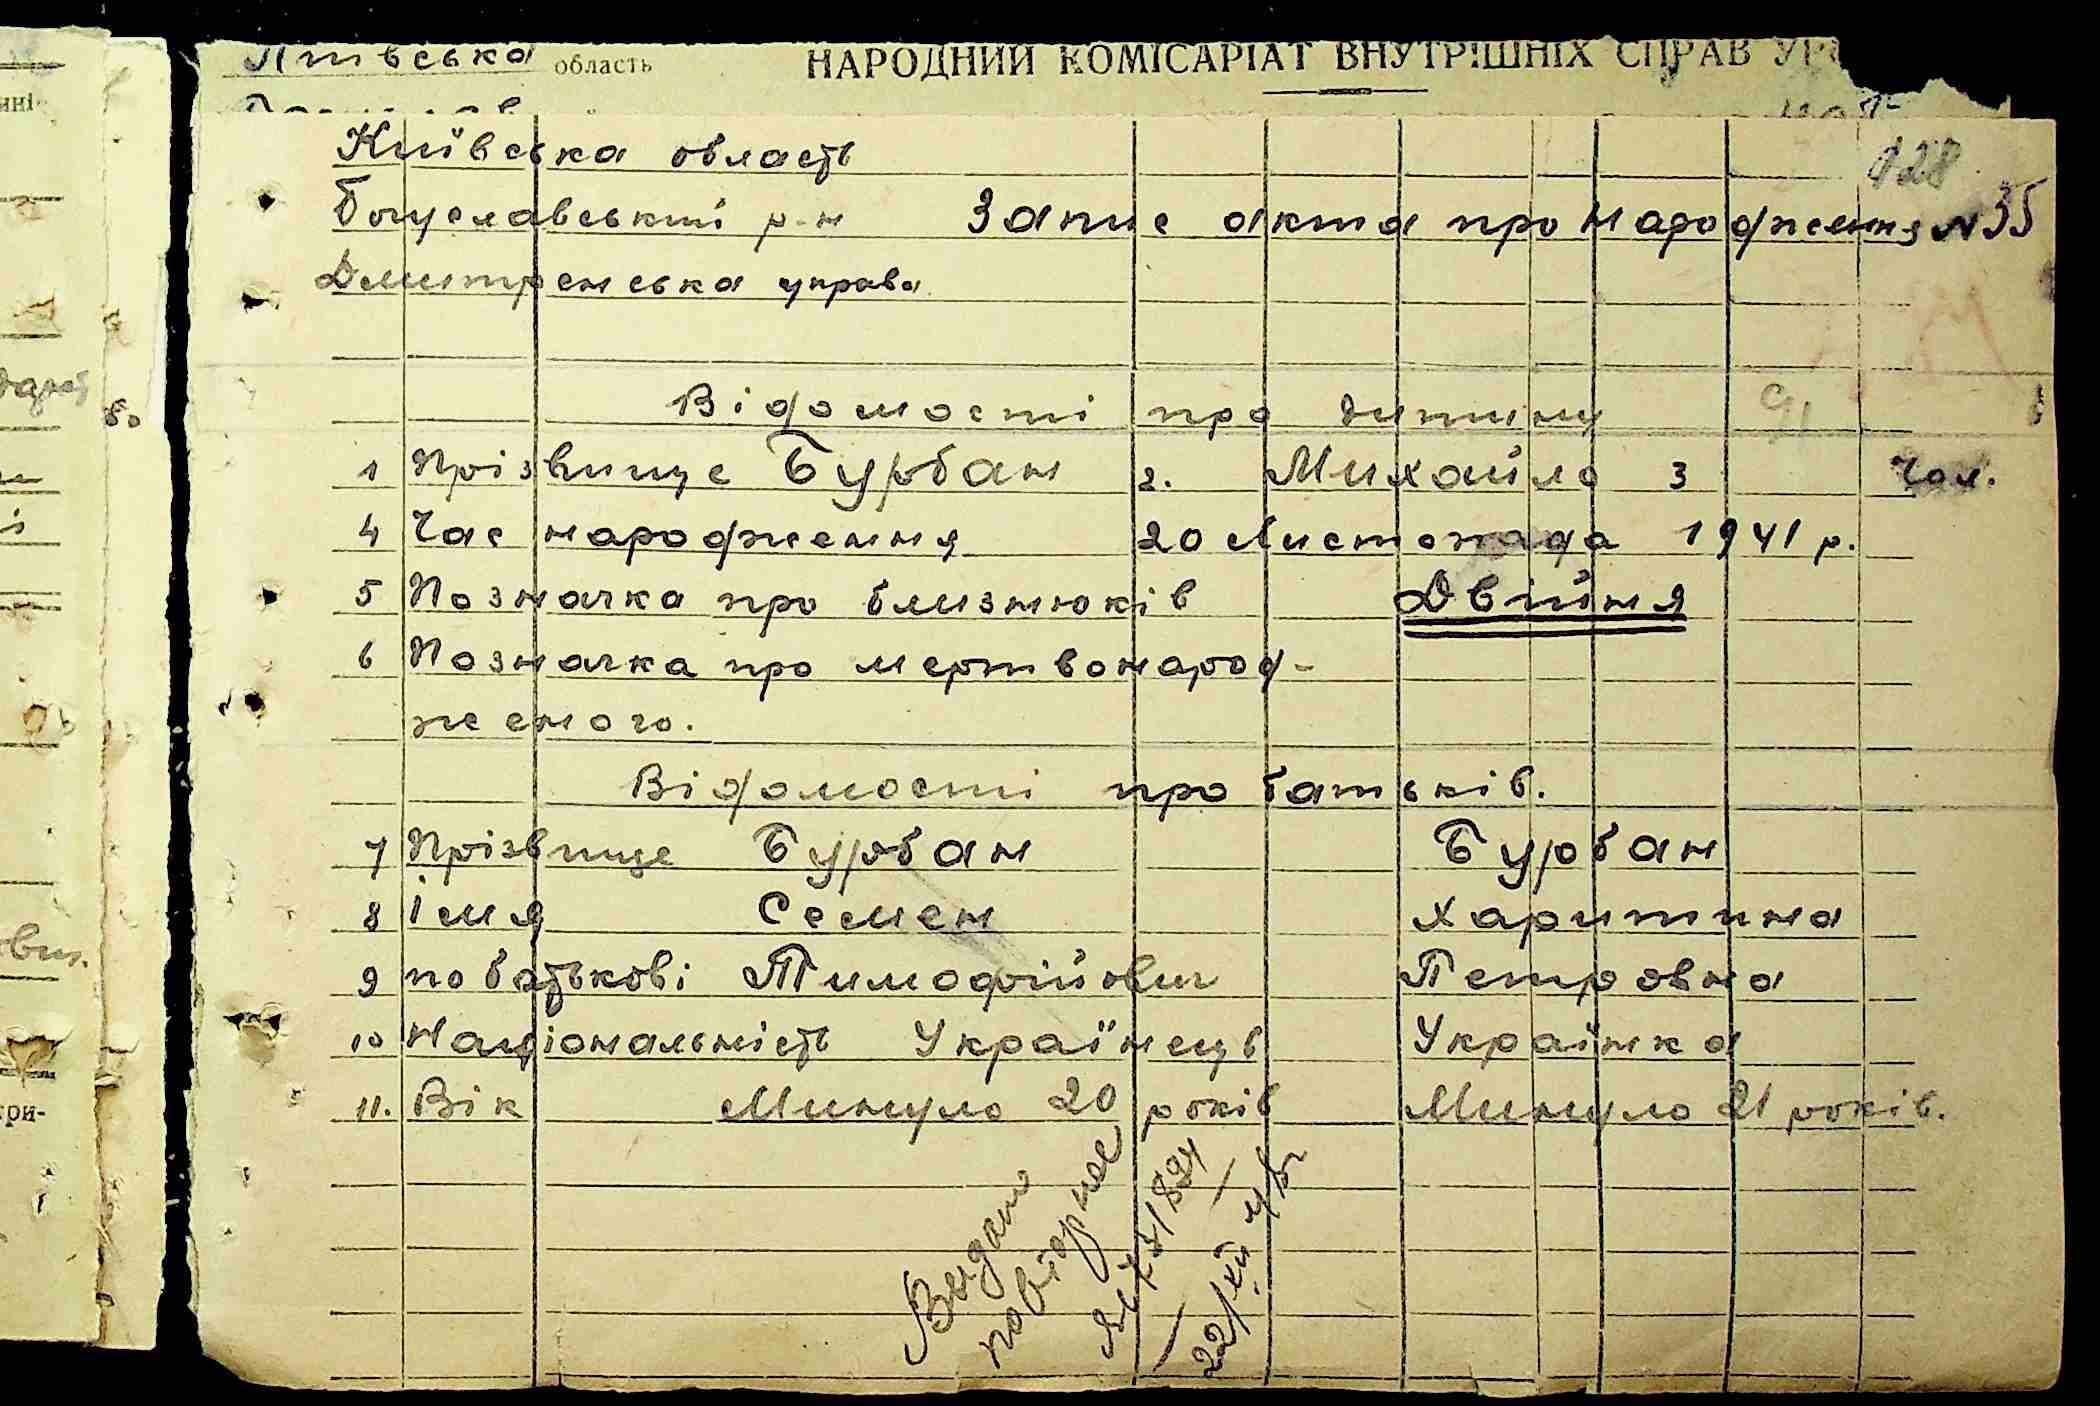 область НАРОДНИЙ КОМІСАРІАТ ВНУТРІШНІХ СПРАВ
128
Київська область
Богуславський р-н Запис акта про народження N 35
Дмитренська управа
Відомості про дитину
1 Прізвище Бурбан 2. Михайло 3 Чол.
4 Час народження 20 Листопада 1941 р.
5 Позначка про близнюків Двійня
6 Позначка про мертвонарод-
женого.
Відомості про батьків.
7 Прізвище Бурбан Бурбан
8 Імя Семен Харитина
9 по батькові Тимофійович Петровна
10 Національність Українець Українка
11. Вік Минуло 20 років Минуло 21 років.
Видано
повторное